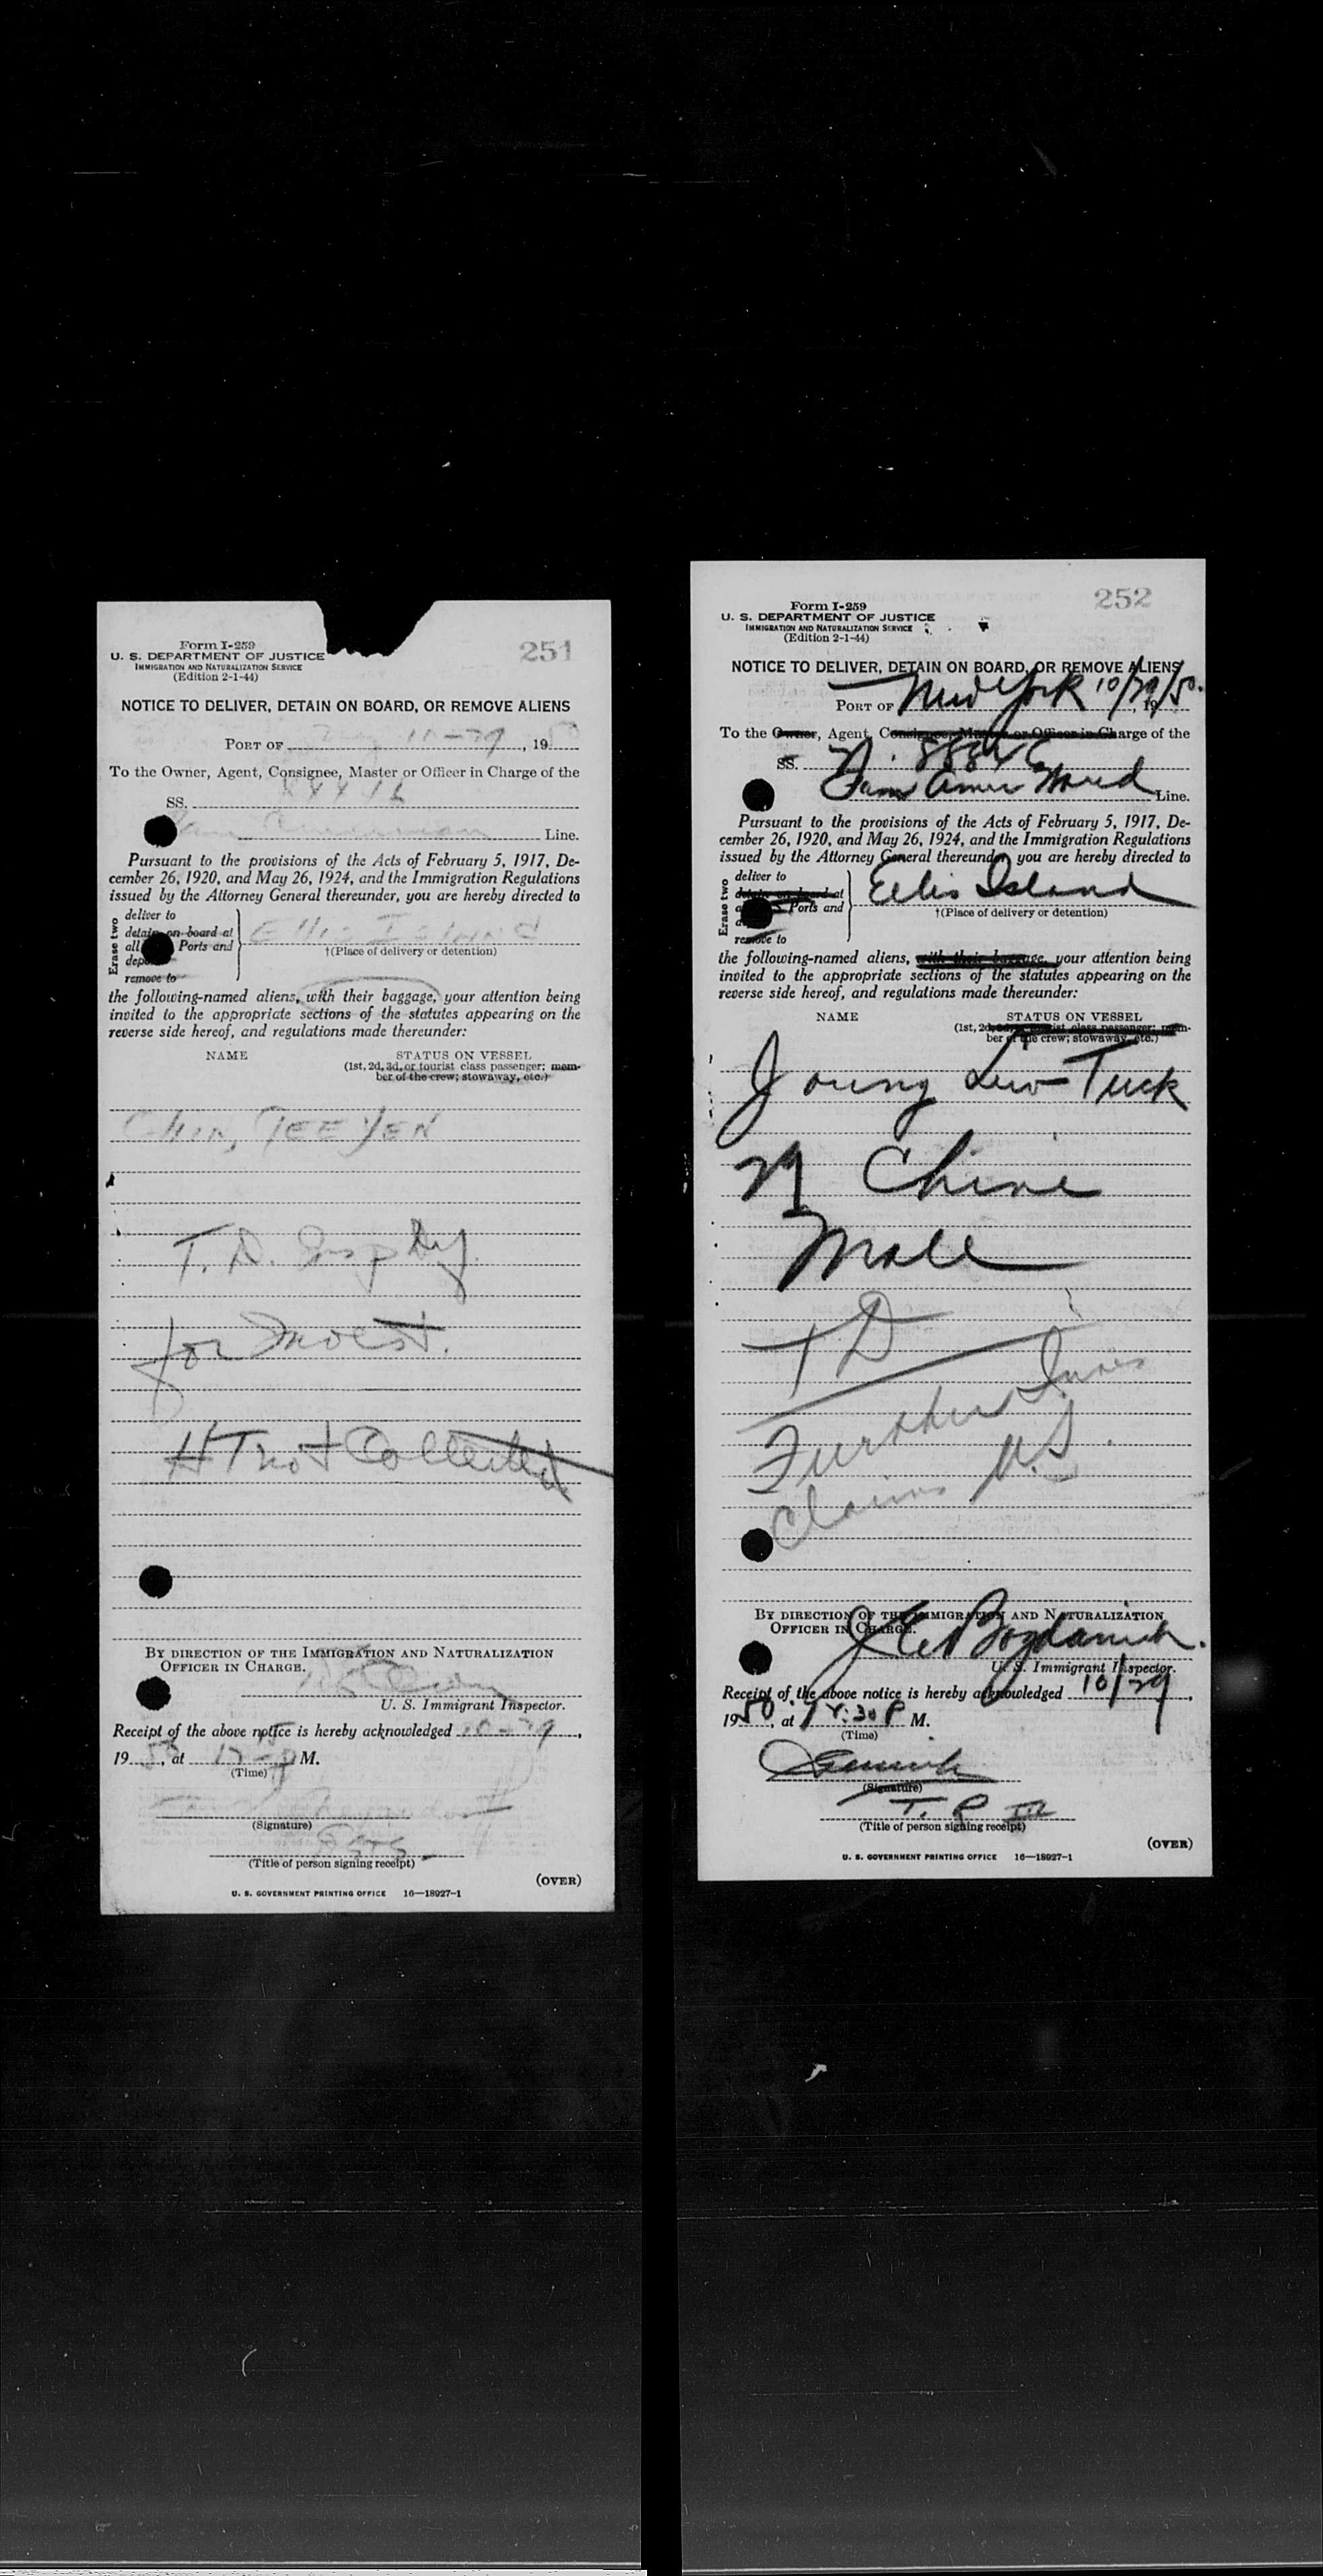 Form I-259
U. S. DEPARTMENT OF JUSTICE
IMMIGRATION AND NATURALIZATION SERVICE
(Edition 2-1-44)
251
NOTICE TO DELIVER, DETAIN ON BOARD, OR REMOVE ALIENS
PORT OF , 19
To the Owner, Agent, Consignee, Master or Officer in Charge of the
SS.
Line.
Pursuant to the provisions of the Acts of February 5, 1917, De-
cember 26, 1920, and May 26, 1924, and the Immigration Regulations
issued by the Attorney General thereunder, you are hereby directed to
Erase two
deliver to
detain on board at
all Ports and
remove to
Ellis Island
†(Place of delivery or detention)
the following-named aliens, with their baggage, your attention being
invited to the appropriate sections of the statutes appearing on the
reverse side hereof, and regulations made thereunder:
NAME STATUS ON VESSEL
(1st, 2d, 3d, or tourist class passenger; mem-
ber of the crew; stowaway, etc.)
CHIN, YEN
T. D.
for Invest.
HT not Collected
BY DIRECTION OF THE IMMIGRATION AND NATURALIZATION
OFFICER IN CHARGE.
U. S. Immigrant Inspector.
Receipt of the above notice is hereby acknowledged
19 , at M.
(Time)
(Signature)
(Title of person signing receipt)
(OVER)
U. S. GOVERNMENT PRINTING OFFICE 16—18927-1
Form I-259
U. S. DEPARTMENT OF JUSTICE
IMMIGRATION AND NATURALIZATION SERVICE
(Edition 2-1-44)
252
NOTICE TO DELIVER, DETAIN ON BOARD, OR REMOVE ALIENS
PORT OF New York 10/29/50
To the Owner, Agent, Consignee, Master or Officer in Charge of the
SS.
Pam Amer Line.
Pursuant to the provisions of the Acts of February 5, 1917, De-
cember 26, 1920, and May 26, 1924, and the Immigration Regulations
issued by the Attorney General thereunder, you are hereby directed to
Erase two
deliver to
detain on board at
Ports and
remove to
Ellis Island
†(Place of delivery or detention)
the following-named aliens, with their baggage, your attention being
invited to the appropriate sections of the statutes appearing on the
reverse side hereof, and regulations made thereunder:
NAME STATUS ON VESSEL
(1st, 2d, 3d, or tourist class passenger; mem-
ber of the crew; stowaway, etc.)
Young Tuck
Male
TD
Further
Claims U.S.
BY DIRECTION OF THE IMMIGRATION AND NATURALIZATION
OFFICER IN CHARGE.
Bogdanich
U. S. Immigrant Inspector.
Receipt of the above notice is hereby acknowledged 10/29,
1950, at M.
(Time)
(Signature)
(Title of person signing receipt)
(OVER)
U. S. GOVERNMENT PRINTING OFFICE 16—18927-1